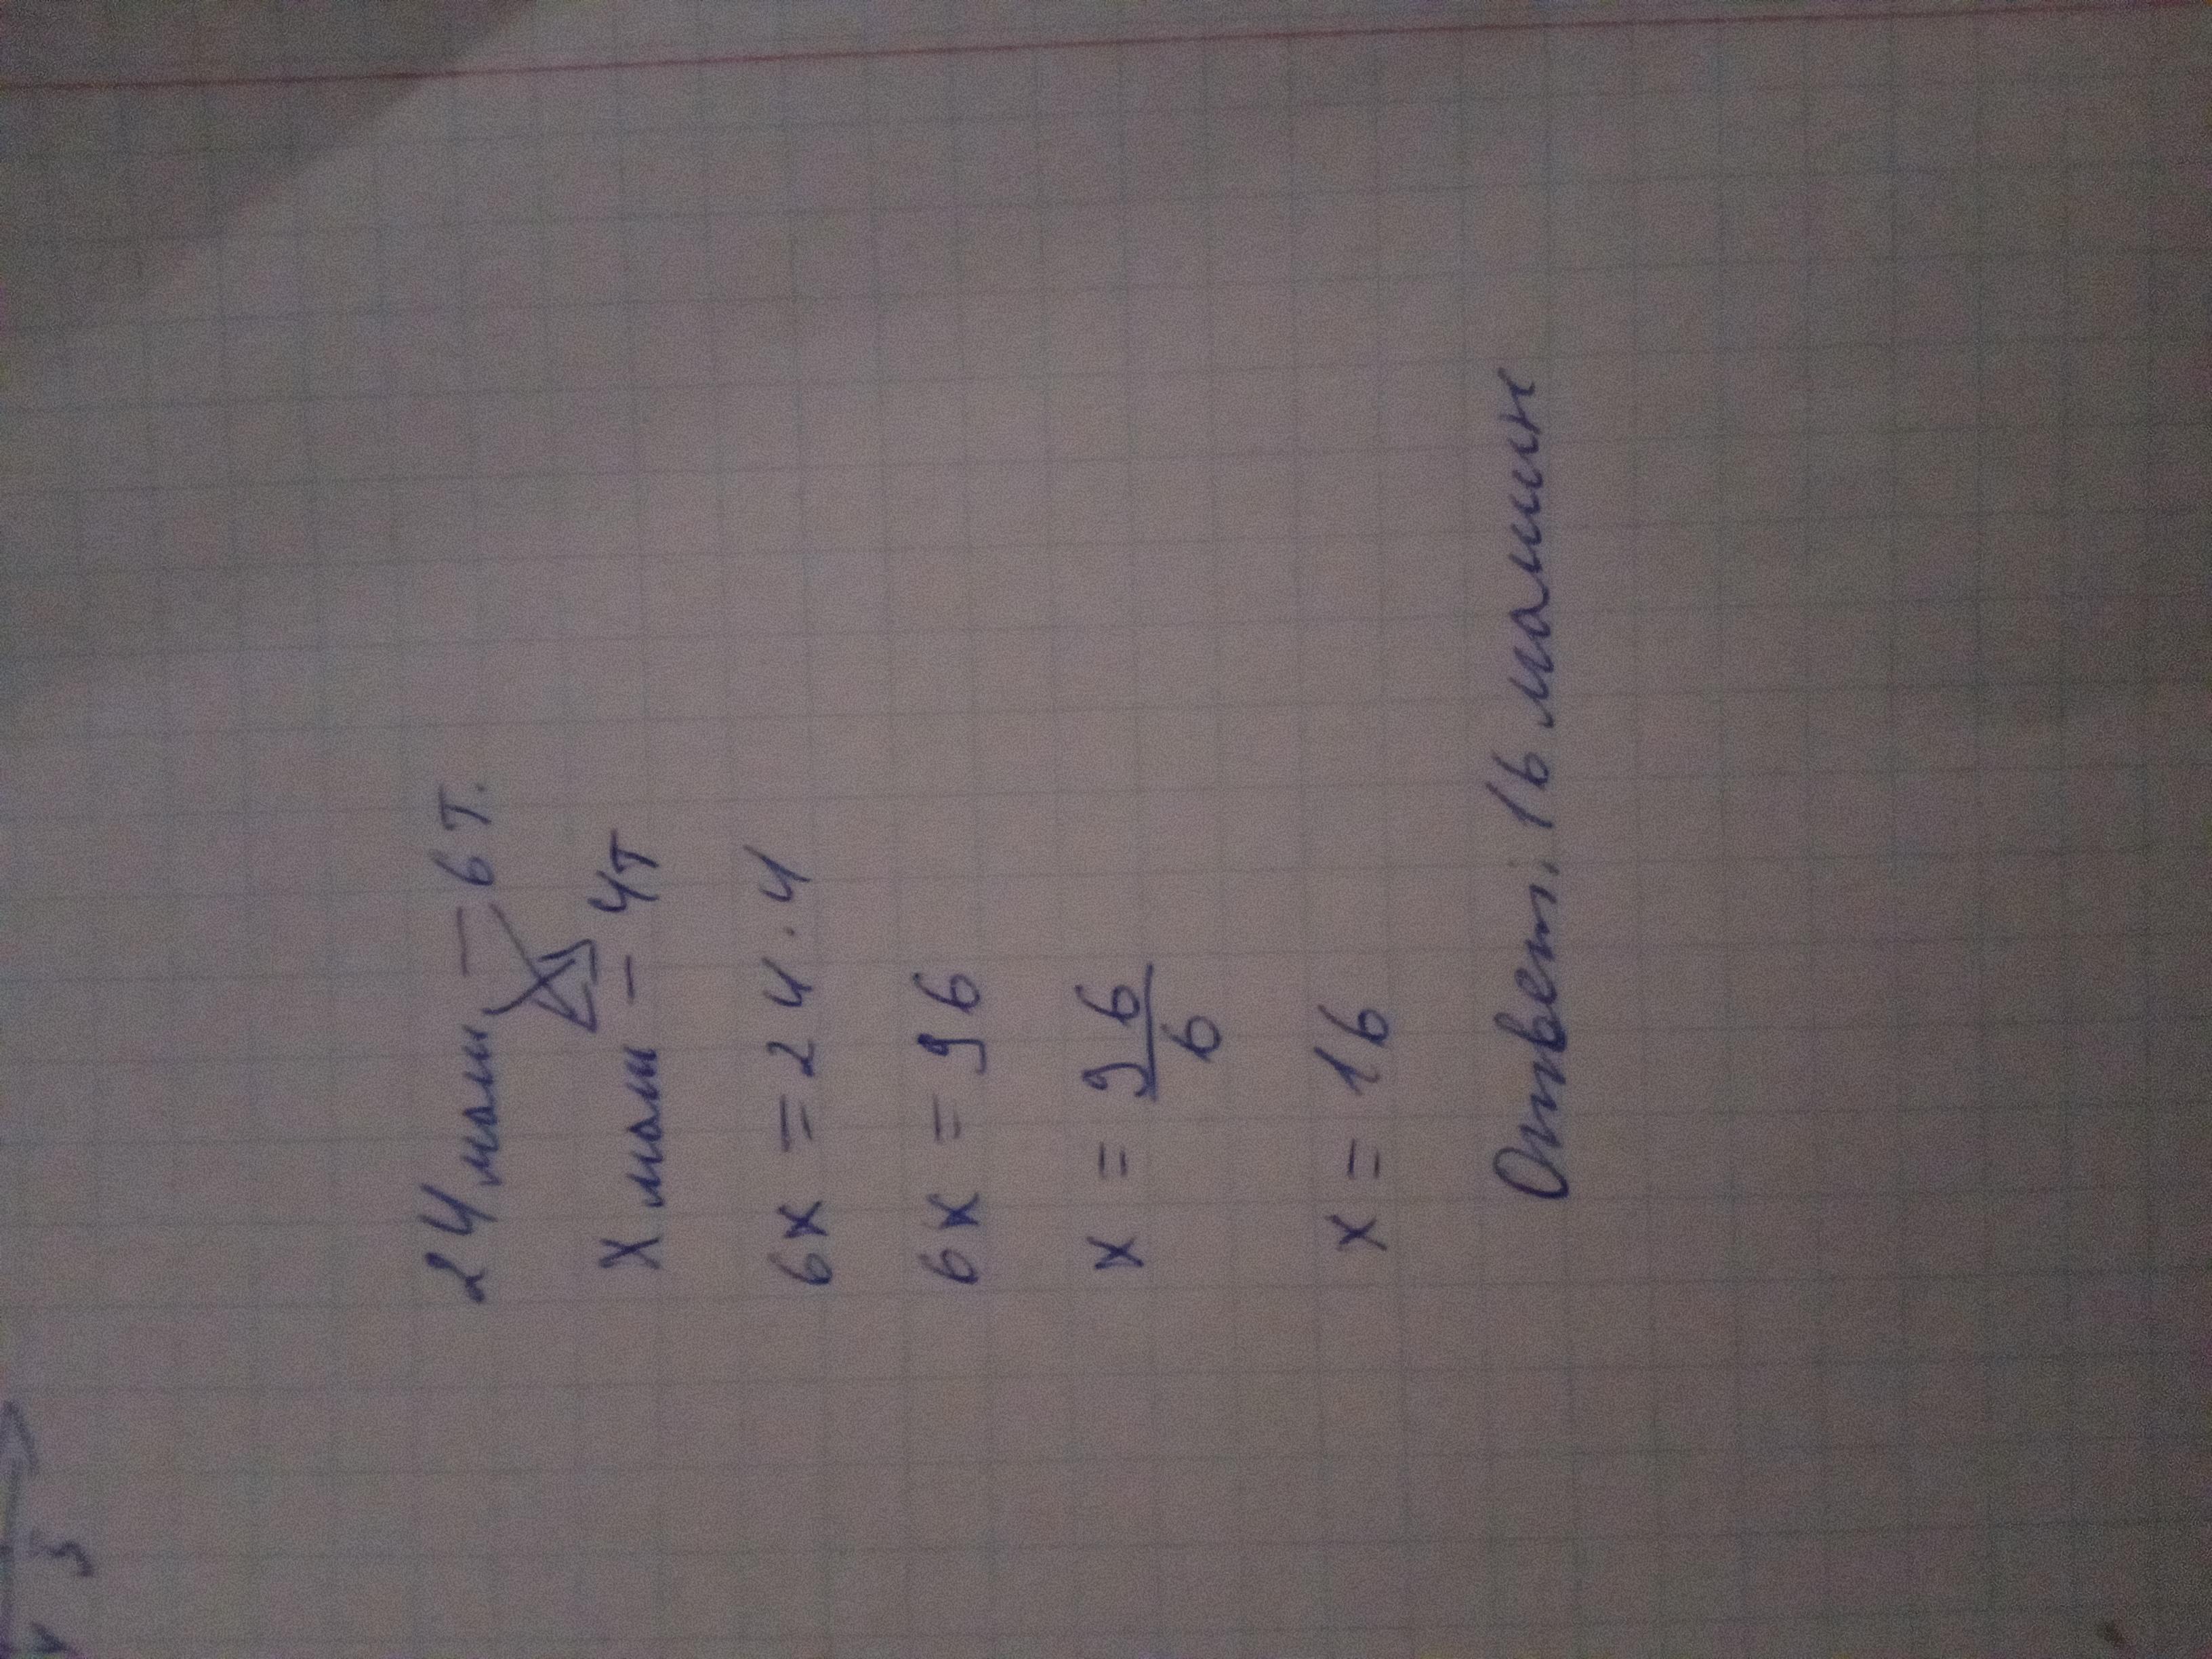 24 маш – 6 т.
х маш – 4т
6х = 24 · 4
6х = 96
х = 96/6
х = 16
Ответ: 16 машин